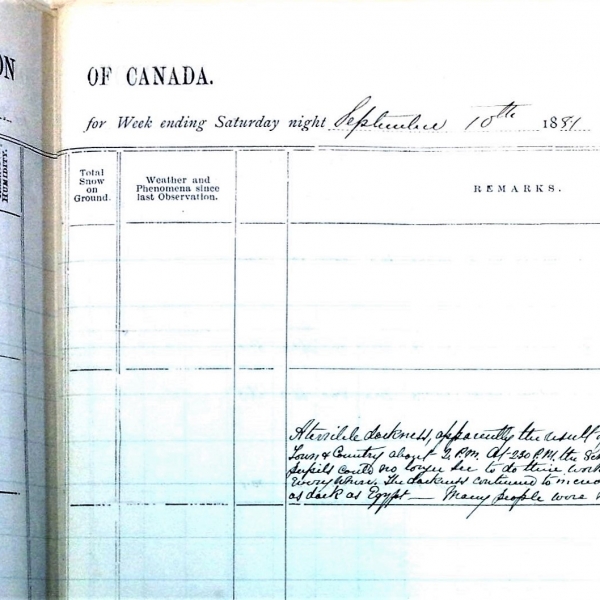 ON
OF CANADA.
for Week ending Saturday night September 10th 1881
HUMIDITY.
Total Snow on Ground.
Weather and Phenomena since last Observation.
REMARKS.
A terrible darkness, apparently the result
Town & Country about 2 P.M. At 2.30 P.M. the
pupils could no longer see to do their work
Everywhere. The darkness continued to
as dark as Egypt — Many people were